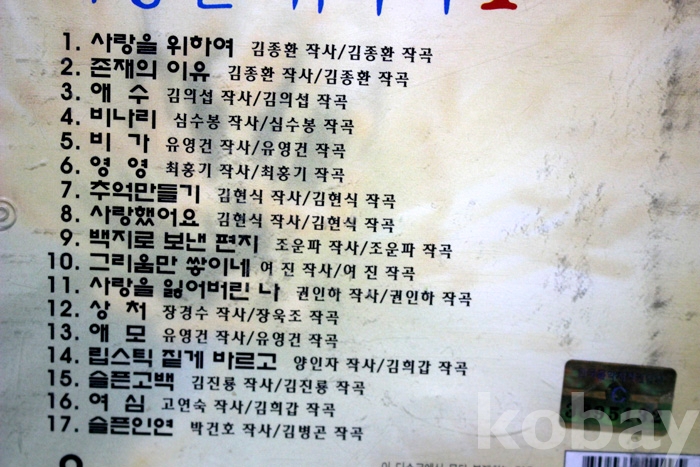 1. 사랑을 위하여 김종환 작사/김종환 작곡
2. 존재의 이유 김종환 작사/김종환 작곡
3. 애 수 김의섭 작사/김의섭 작곡
4. 비나리 심수봉 작사/심수봉 작곡
5. 비 가 유영건 작사/유영건 작곡
6. 영 영 최홍기 작사/최홍기 작곡
7. 추억만들기 김현식 작사/김현식 작곡
8. 사랑했어요 김현식 작사/김현식 작곡
9. 백지로 보낸 편지 조운파 작사/조운파 작곡
10. 그리움만 쌓이네 여 진 작사/여 진 작곡
11. 사랑을 잃어버린 나 권인하 작사/권인하 작곡
12. 상 처 장경수 작사/장욱조 작곡
13. 애 모 유영건 작사/유영건 작곡
14. 립스틱 짙게 바르고 양인자 작사/김희갑 작곡
15. 슬픈고백 김진룡 작사/김진룡 작곡
16. 여 심 고연숙 작사/김희갑 작곡
17. 슬픈인연 박건호 작사/김병곤 작곡
kobay